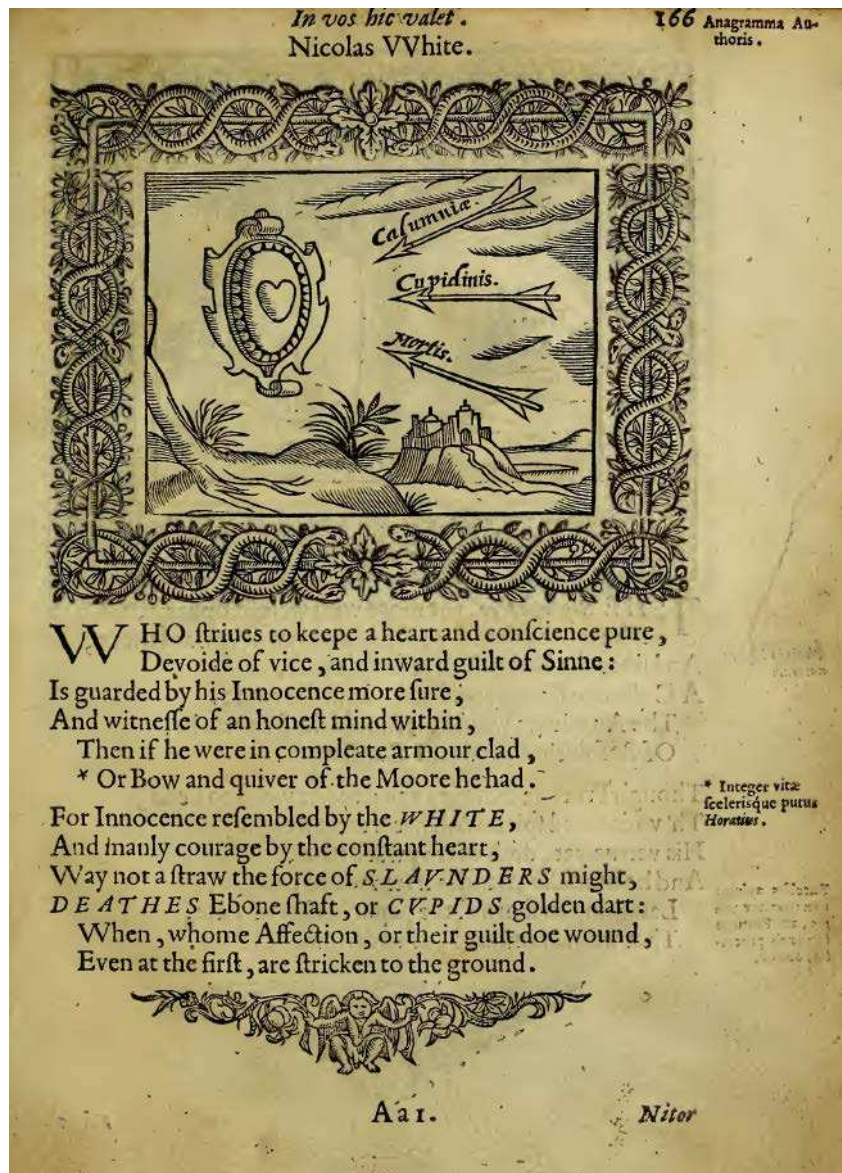 In vos hic valet.
166 Anagramma Au-
thoris.
Nicolas VVhite.
Calumniæ.
Cupidinis.
Mortis.
VVHO ſtriues to keepe a heart and conſcience pure,
Devoide of vice, and inward guilt of Sinne:
Is guarded by his Innocence more ſure,
And witneſſe of an honeſt mind within,
Then if he were in compleate armour clad,
* Or Bow and quiver of the Moore he had.
* Integer vitæ
ſcelerisque purus
Horatius.
For Innocence reſembled by the WHITE,
And manly courage by the conſtant heart,
Way not a ſtraw the force of SLAVNDERS might,
DEATHES Ebone ſhaft, or CVPIDS golden dart:
When, whome Affection, or their guilt doe wound,
Even at the firſt, are ſtricken to the ground.
Aa1.
Nitor